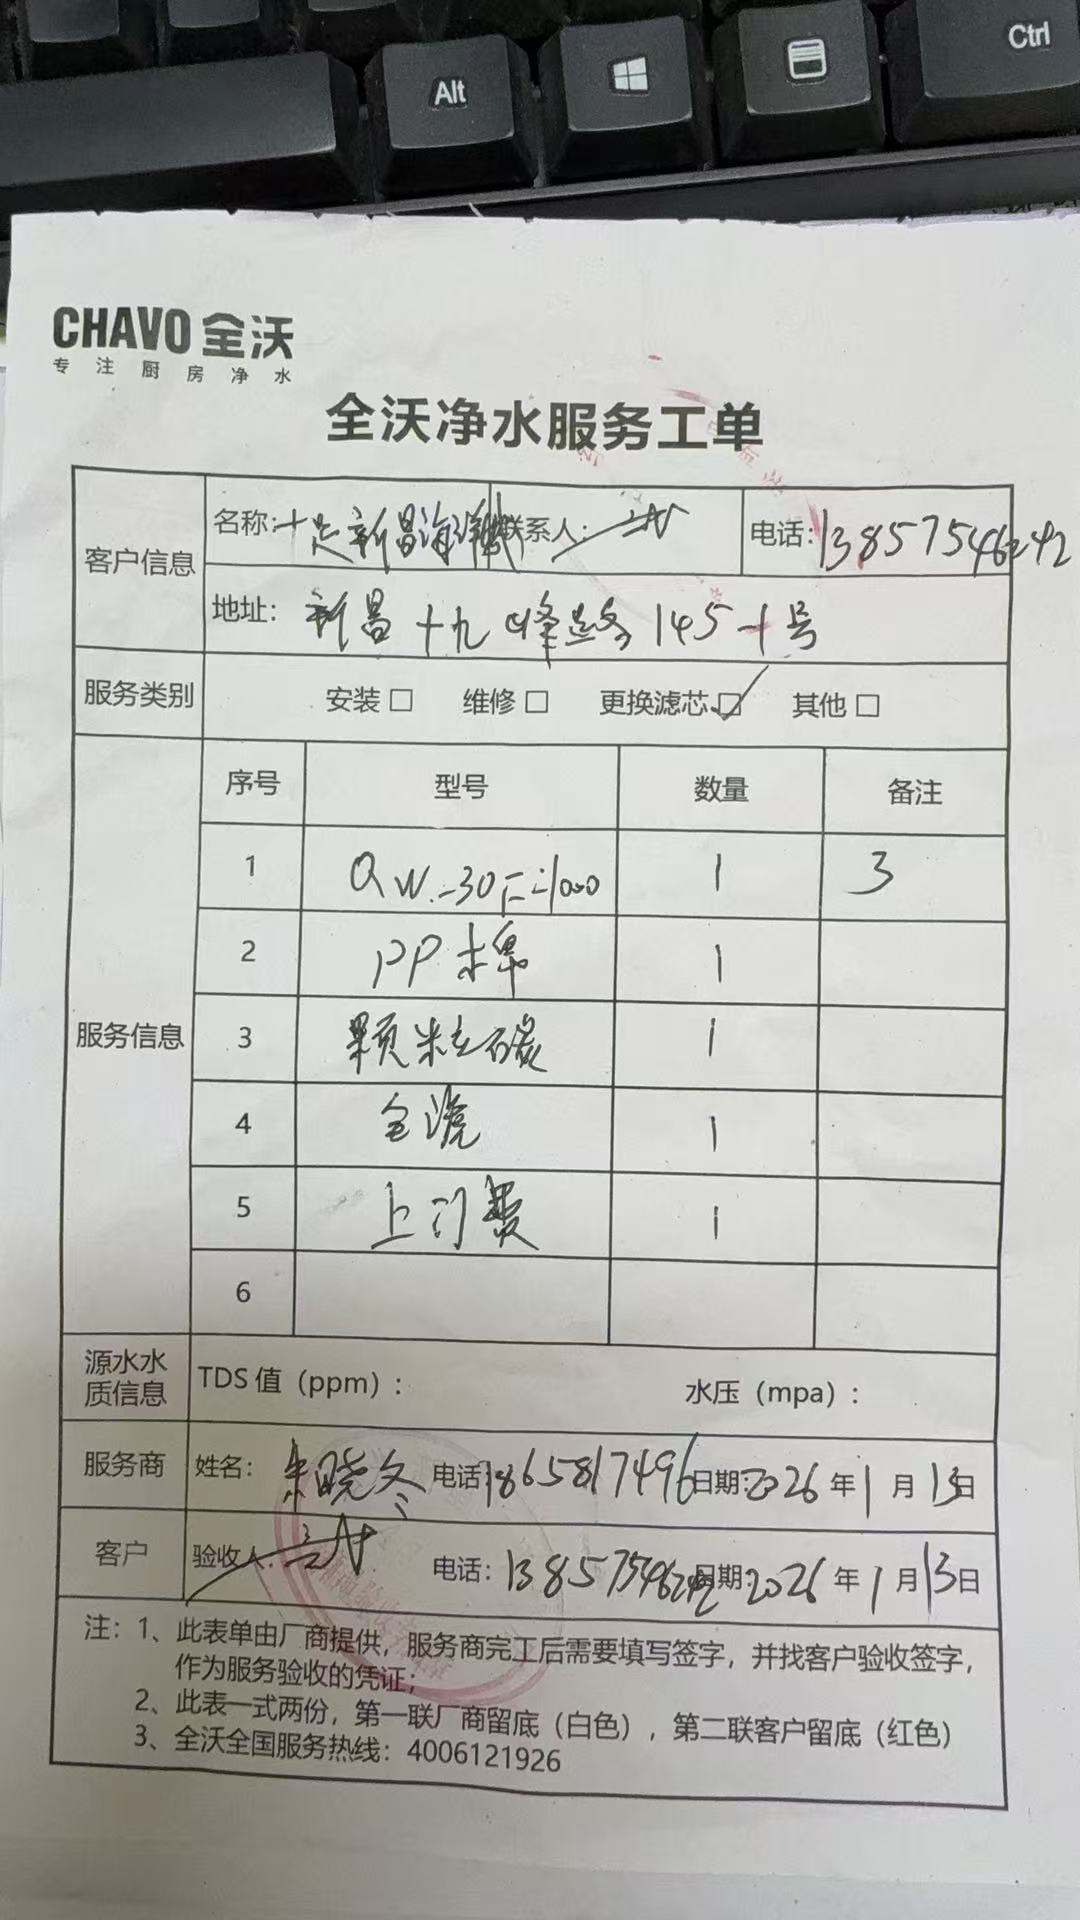 Alt
Ctrl
CHAVO 全沃
专注厨房净水
全沃净水服务工单
客户信息
名称：十足新昌 联系人： 电话：13857546242
地址：新昌十九峰路145-1号
服务类别 安装□ 维修□ 更换滤芯☑ 其他□
服务信息
序号 型号 数量 备注
1 1 3
2 PP棉 1
3 颗粒碳 1
4 1
5 上门费 1
6
源水水质信息 TDS值（ppm）： 水压（mpa）：
服务商 姓名：朱晓冬 电话：18658817496 日期：2026年1月13日
客户 验收人： 电话：13857546242 日期：2026年1月13日
注：1、此表单由厂商提供，服务商完工后需要填写签字，并找客户验收签字，
作为服务验收的凭证；
2、此表一式两份，第一联厂商留底（白色），第二联客户留底（红色）
3、全沃全国服务热线：4006121926